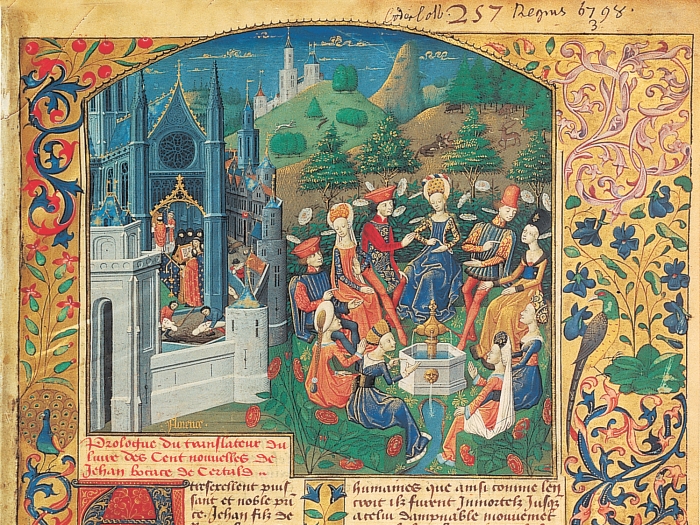 257 Regius 6798.
3
florence
Prologue du translateur du
liure des Cent nouuelles de
Jehan Bocace de Certald
A tresexcellent puis
sant et noble prin
ce. Jehan filz de
humaines que ainsi comme len
croit ilz furent Immortelz Jusqz
a celui dampnable mouuement